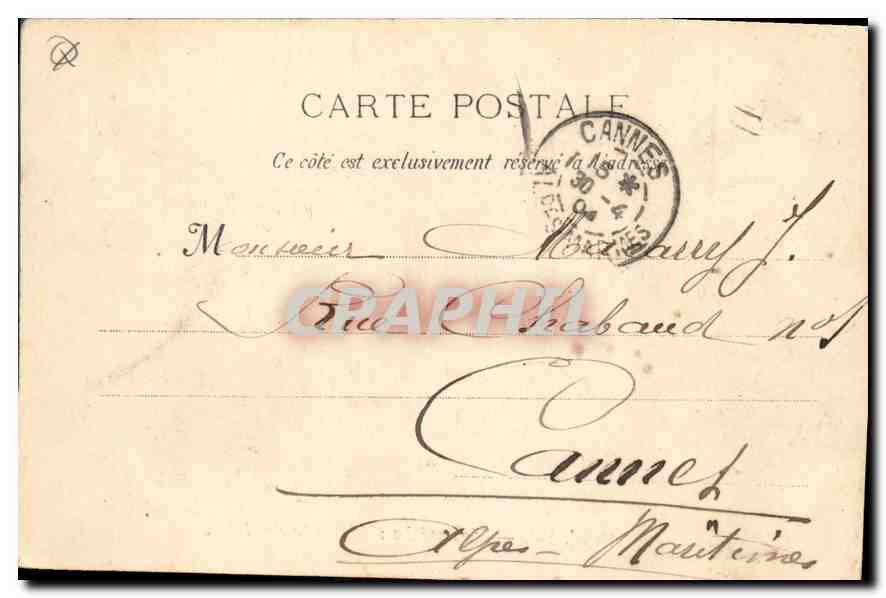 CARTE POSTALE
Ce côté est exclusivement réservé à l'adresse
CANNES
30 -4
04
ALPES MARITIMES
Monsieur J.
Rue Chabaud no
CRAPHIL
Cannes
Alpes - Maritimes